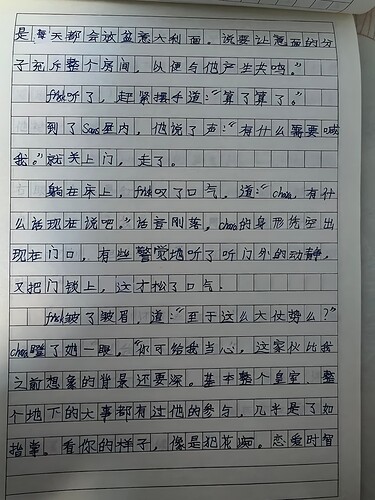 是每天都会放盆意大利面。说要让意面的分
子充斥整个房间，以便与他产生共鸣。”
frisk听了，赶紧摆手道：“算了算了。”
到了Sans屋内，他说了声：“有什么需要喊
我。”就关上门，走了。
躺在床上，frisk叹了口气，道：“chara，有什
么话现在说吧。”话音刚落，chara的身形凭空出
现在门口，有些警觉地听了听门外的动静，
又把门锁上，这才松了口气。
frisk皱了皱眉，道：“至于这么大仗势么？”
chara瞪了她一眼，“你可给我当心，这家伙比我
之前想象的背景还要深。基本整个皇室，整
个地下的大事都有过他的参与，几乎是了如
指掌。看你的样子，像是犯花痴。恋爱时智